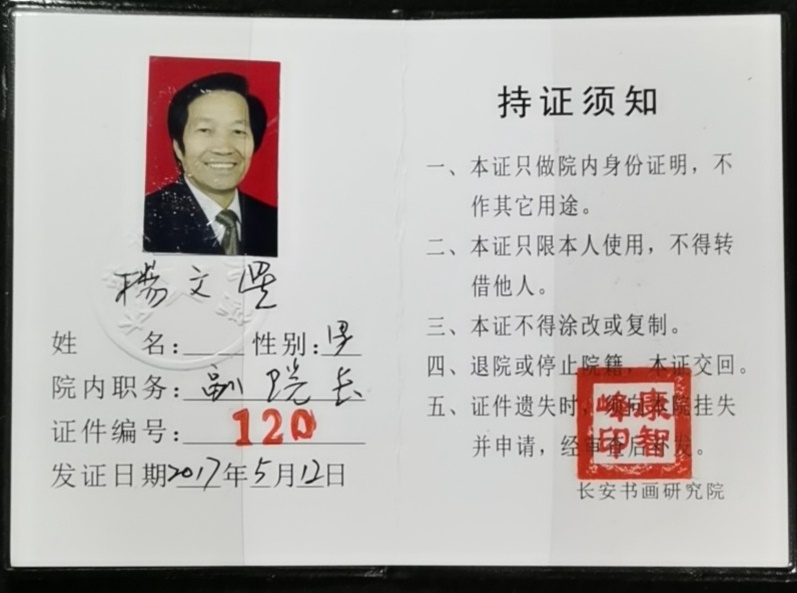 楊文
姓 名：____ 性别：男
院内职务：副院长
证件编号：120
发证日期2017年5月12日
持证须知
一、本证只做院内身份证明，不
作其它用途。
二、本证只限本人使用，不得转
借他人。
三、本证不得涂改或复制。
四、退院或停止院籍，本证交回。
五、证件遗失时，须向本院挂失
并申请，经审查后补发。
康智
峰印
长安书画研究院